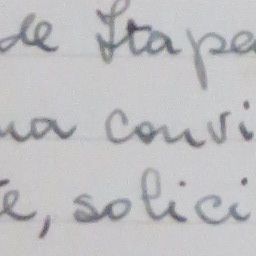 de Itape
ua convi
te, solici